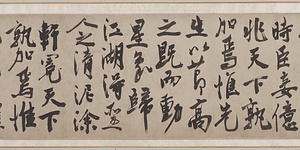 時臣妾億
兆天下孰
加焉惟先
生以節高
之既而動
星象歸
江湖得聖
人之清泥塗
軒冕天下
孰加焉惟